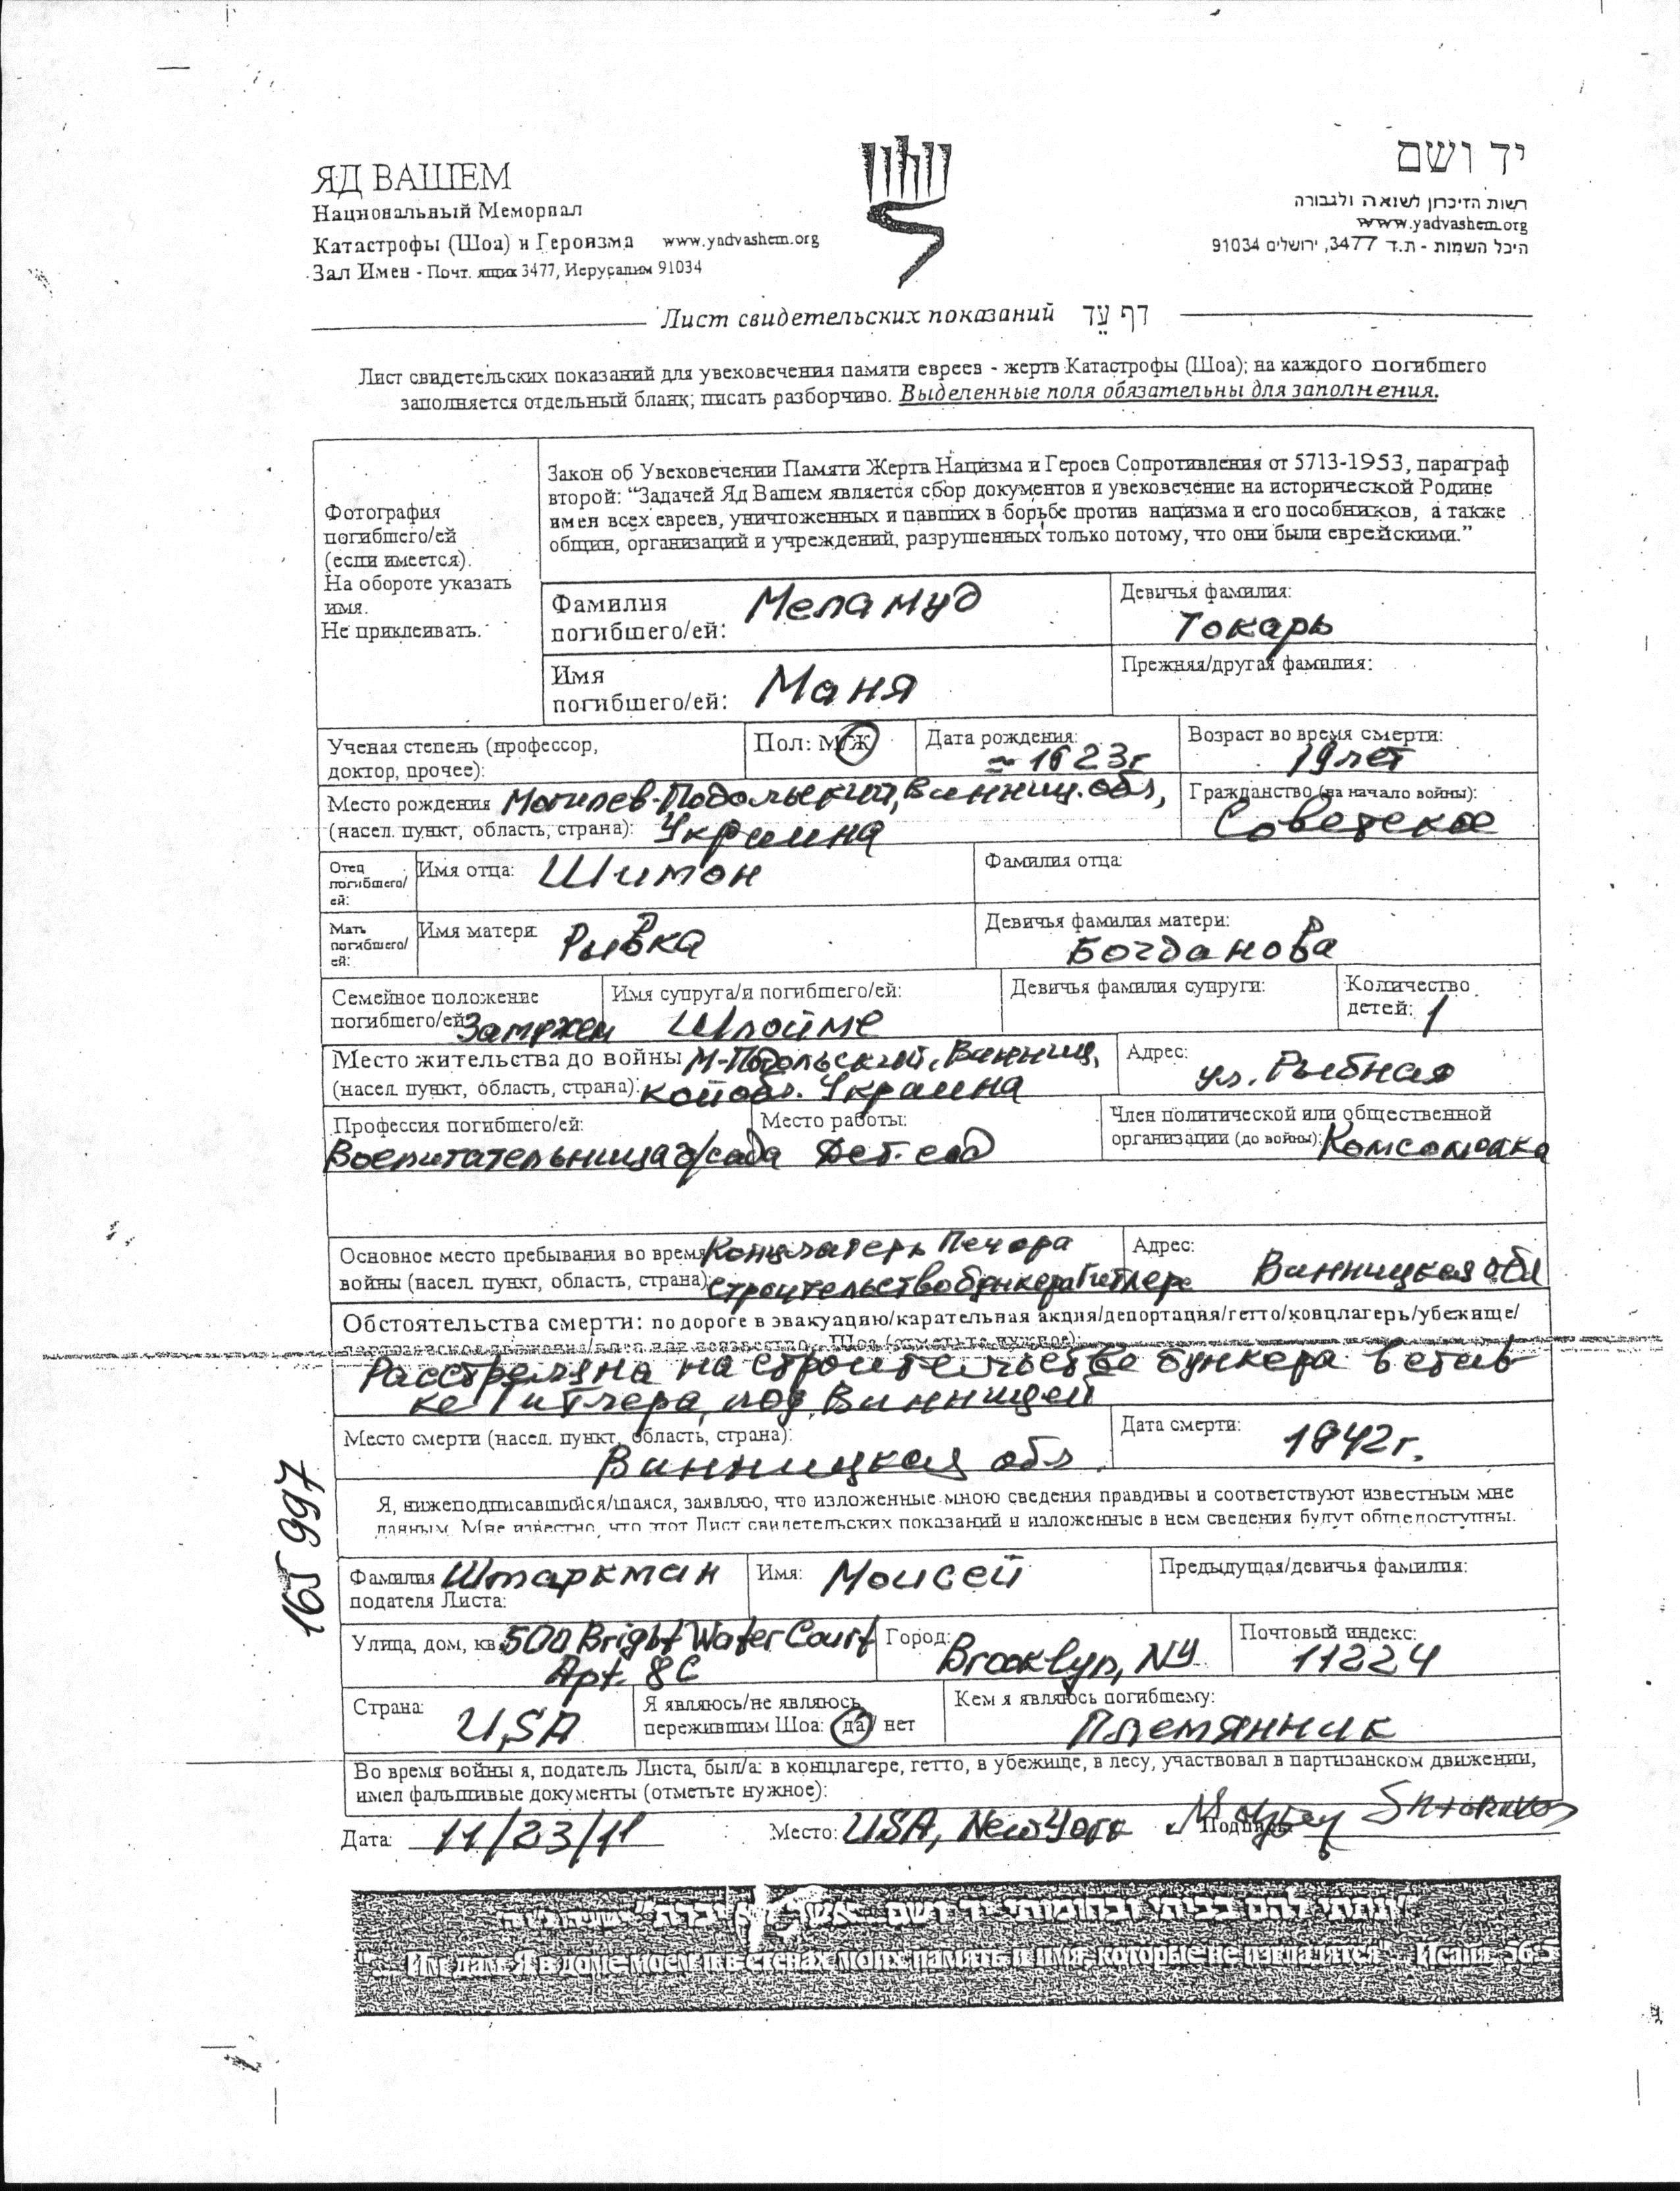 ЯД ВАШЕМ
Национальный Мемориал
Катастрофы (Шоа) и Героизма www.yadvashem.org
Зал Имен - Почт. ящик 3477, Иерусалим 91034
יד ושם
רשות הזיכרון לשואה ולגבורה
www.yadvashem.org
היכל השמות - ת.ד 3477, ירושלים 91034
Лист свидетельских показаний דף עד
Лист свидетельских показаний для увековечения памяти евреев - жертв Катастрофы (Шоа); на каждого погибшего
заполняется отдельный бланк; писать разборчиво. Выделенные поля обязательны для заполнения.
Фотография
погибшего/ей
(если имеется).
На обороте указать
имя.
Не приклеивать.
Закон об Увековечении Памяти Жертв Нацизма и Героев Сопротивления от 5713-1953, параграф
второй: “Задачей Яд Вашем является сбор документов и увековечение на исторической Родине
имен всех евреев, уничтоженных и павших в борьбе против нацизма и его пособников, а также
общин, организаций и учреждений, разрушенных только потому, что они были еврейскими.”
Фамилия
погибшего/ей: Меламуд
Девичья фамилия:
Токарь
Имя
погибшего/ей: Маня
Прежняя/другая фамилия:
Ученая степень (профессор,
доктор, прочее):
Пол: М/Ж
Дата рождения:
≈ 1923г
Возраст во время смерти:
19 лет
Место рождения Могилев-Подольский, Винниц. обл,
(насел. пункт, область, страна): Украина
Гражданство (на начало войны):
Советское
Отец
погибшего/
ей:
Имя отца: Шимон
Фамилия отца:
Мать
погибшего/
ей:
Имя матери: Рывка
Девичья фамилия матери:
Богданова
Семейное положение
погибшего/ей: Замужем
Имя супруга/и погибшего/ей:
Шлойме
Девичья фамилия супруги:
Количество
детей: 1
Место жительства до войны М-Подольский, Винниц,
(насел. пункт, область, страна): кой обл. Украина
Адрес:
ул. Рыбная
Профессия погибшего/ей:
Воспитательница д/сада
Место работы:
Дет. сад
Член политической или общественной
организации (до войны): Комсомолка
Основное место пребывания во время Концлагерь Печора
войны (насел. пункт, область, страна): строительство бункера Гитлера
Адрес:
Винницкая обл
Обстоятельства смерти: по дороге в эвакуацию/карательная акция/депортация/гетто/концлагерь/убежище/
Шоа (отметьте нужное):
Расстреляна на строительстве бункера в став
ке Гитлера, под Винницей
Место смерти (насел. пункт, область, страна):
Винницкая обл.
Дата смерти:
1942г.
165 997
Я, нижеподписавшийся/шаяся, заявляю, что изложенные мною сведения правдивы и соответствуют известным мне
данным. Мне известно, что этот Лист свидетельских показаний и изложенные в нем сведения будут общедоступны.
Фамилия Штаркман
подателя Листа:
Имя: Моисей
Предыдущая/девичья фамилия:
Улица, дом, кв. 500 Bright Water Court
Apt. 8C
Город:
Brooklyn, NY
Почтовый индекс:
11224
Страна:
USA
Я являюсь/не являюсь
пережившим Шоа: да/ нет
Кем я являюсь погибшему:
Племянник
Во время войны я, податель Листа, был/а: в концлагере, гетто, в убежище, в лесу, участвовал в партизанском движении,
имел фальшивые документы (отметьте нужное):
Дата: 11/23/11 Место: USA, New York Подпись
"ונתתי להם בביתי ובחומותי יד ושם...אשר לא יכרת"
"... Им дам Я в доме моем и в стенах моих память и имя, которые не изгладятся" Исаия 56:5